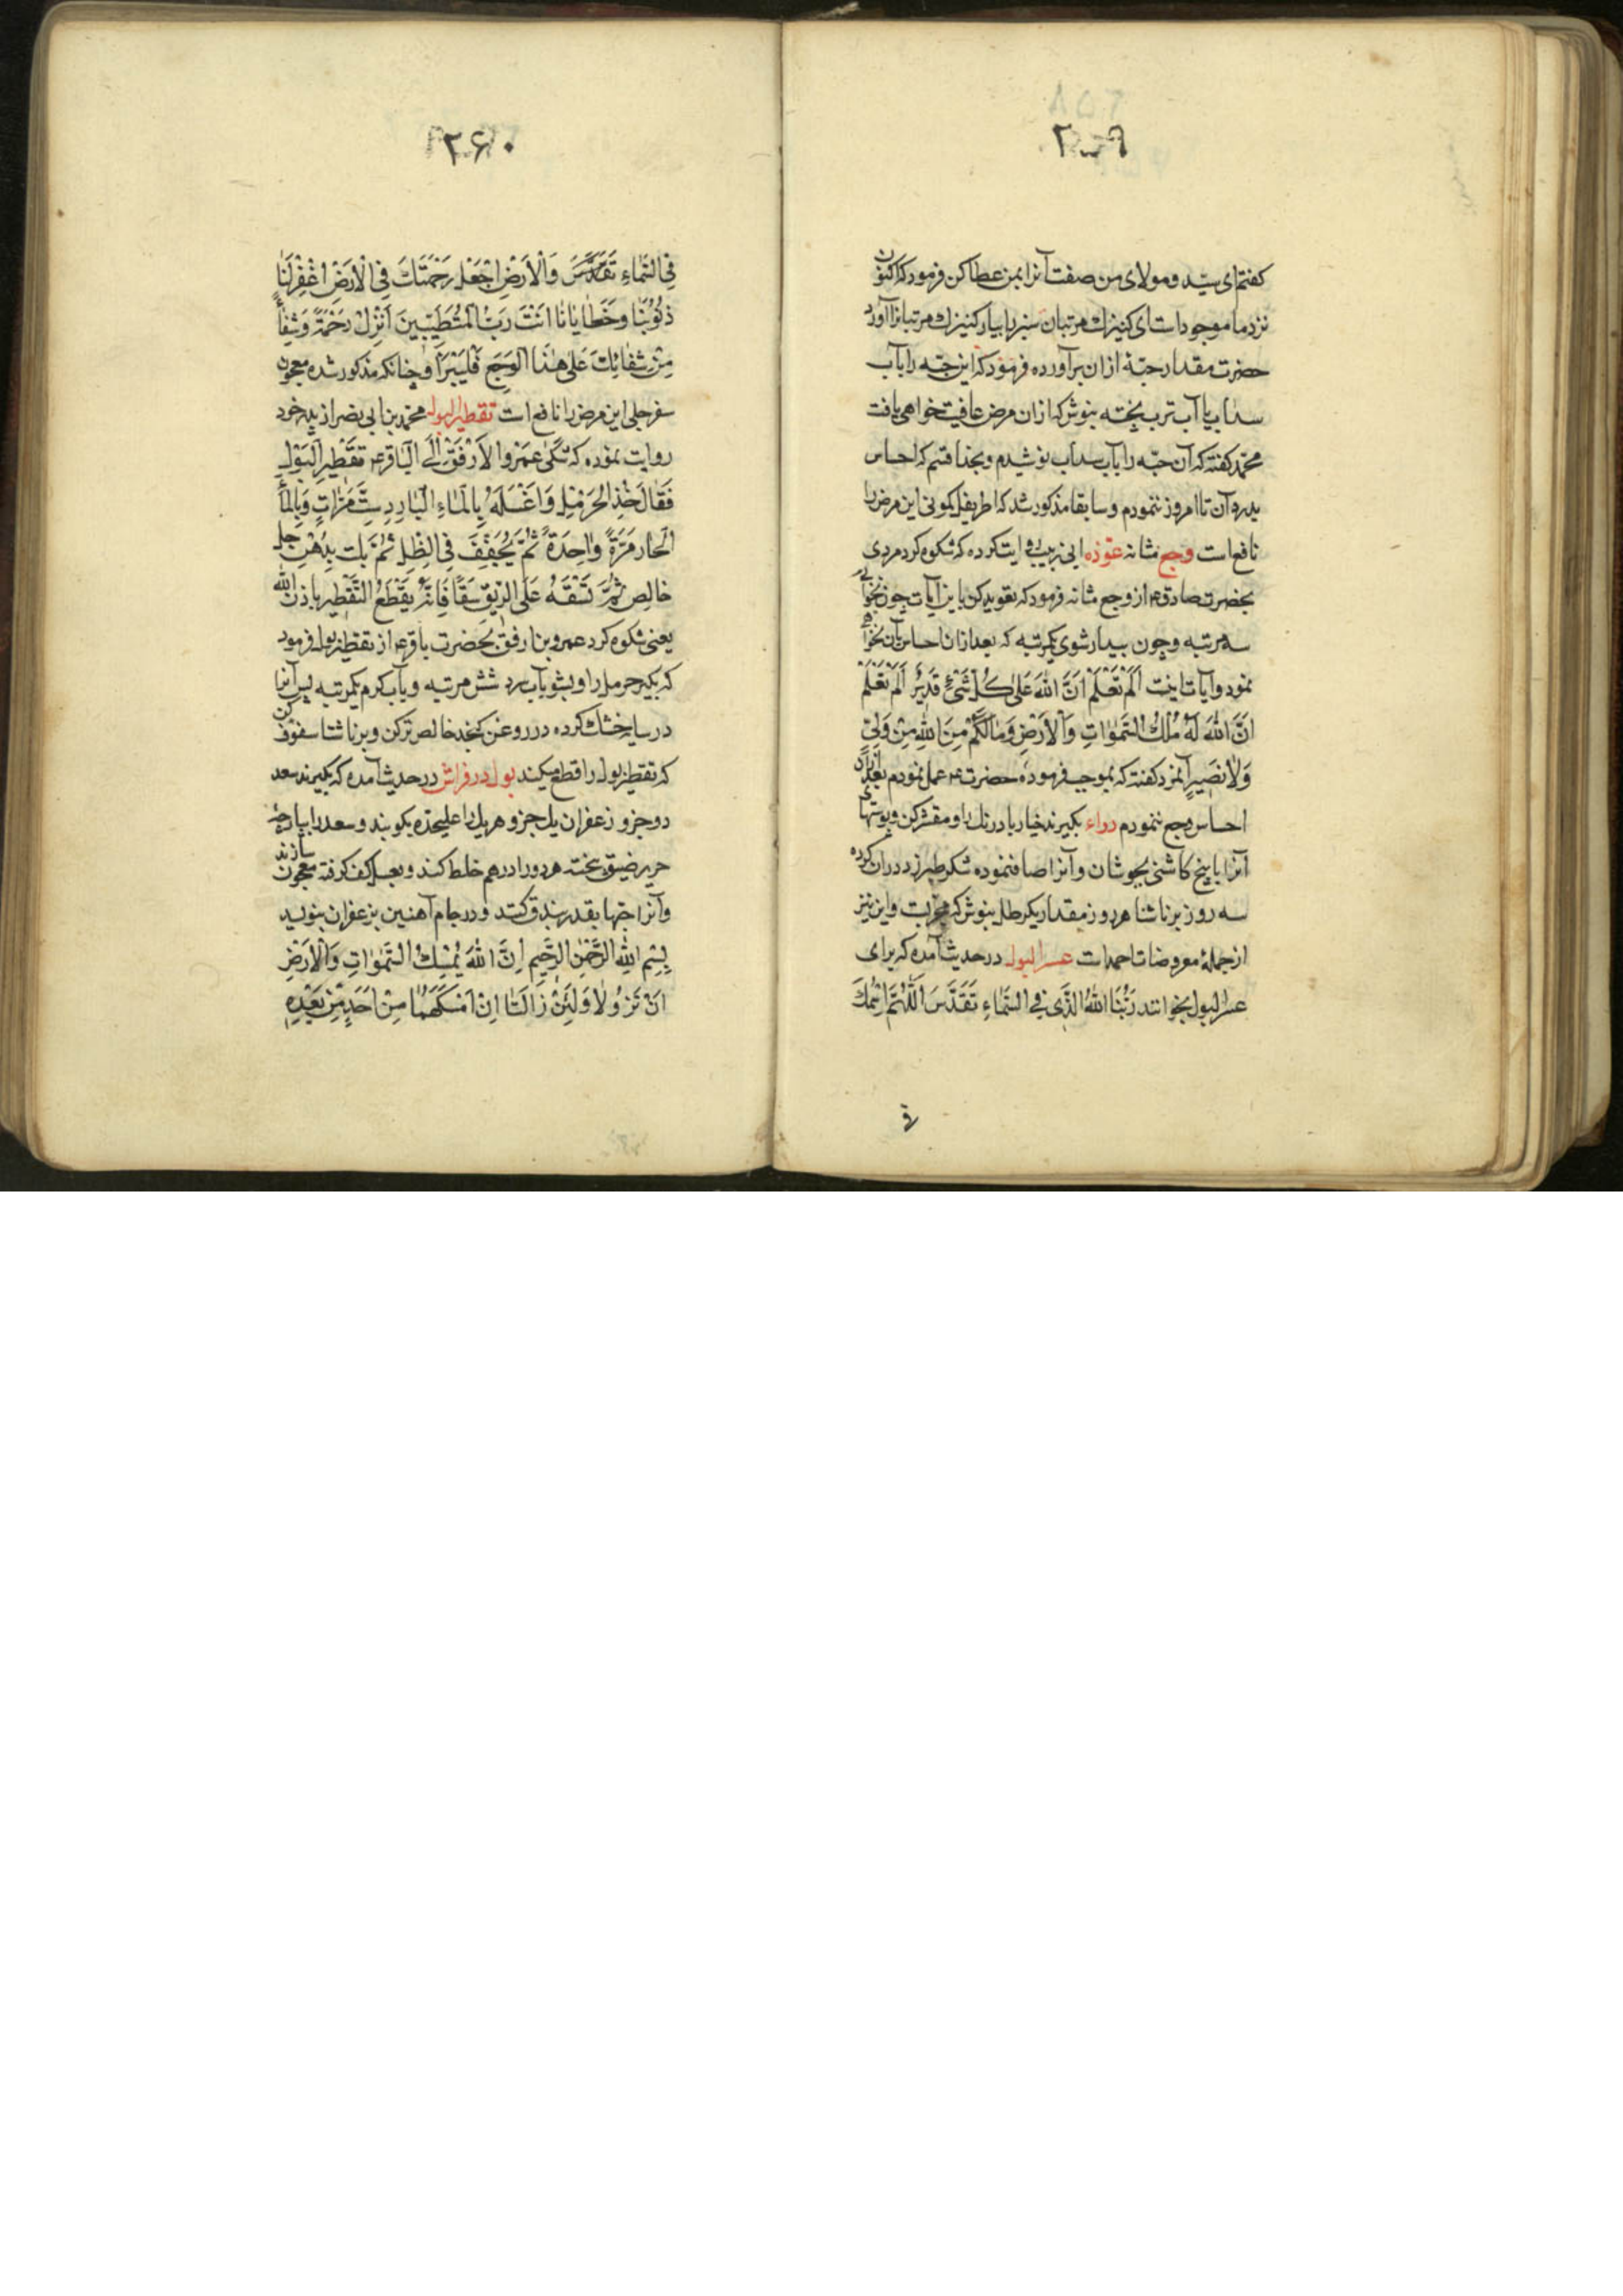 ۲۵۹
کفتم ای سید و مولای من صفت آنرا بمن عطا کن فرمود که اکنون
نزد ما موجود است ای کنیزک مرتبان سبز را بیار کنیزک مرتبانرا آورد
حضرت مقدار حبّهٔ ازان برآورده فرمود که این حبّه را بآب
سداب یا آب ترب پخته بنوش که ازان مرض عافیت خواهی یافت
محمّد کفته که آن حبّه را بآب سداب نوشیدم و بخدا قسم که احساس
بدرد آن تا امروز ننمودم و سابقا مذکور شد که اطریفل کمونی این مرض را
نافع است وجع مثانه عوّذه ابی زینب روایت کرده که شکوه کرد مردی
بحضرت صادق ع از وجع مثانه فرمود که تعویذ کن باین آیات چون بخوابی
سه مرتبه و چون بیدار شوی یکمرتبه که بعد ازان احساس بآن نخواهی
نمود و آیات اینست اَلَمْ تَعْلَمْ اَنَّ اللهَ عَلٰی کُلِّ شَیْءٍ قَدِیْرٌ اَلَمْ تَعْلَمْ
اَنَّ اللهَ لَهُ مُلْکُ السَّمٰوٰاتِ وَالْاَرْضِ وَمٰا لَکُمْ مِنَ اللهِ مِنْ وَلِیٍّ
وَلٰا نَصِیرٍ آنمرد کفته که بموجب فرموده حضرت ع عمل نمودم بعد ازان
احساس وجع ننمودم دواء بکیرند خیار بادرنک را و مقشر کن و پوستهای
آنرا با بیخ کاشنی بجوشان و آنرا صاف نموده شکر طبرزد دران کرده
سه روز بر ناشتا هر روز مقدار یکرطل بنوش که مجربست و این نیز
از جملهٔ معروضات احمد است عسر البول در حدیث آمده که برای
عسر البول بخوانند رَبُّنَا اللهُ الَّذِی فِی السَّمٰاءِ تَقَدَّسَ اَللّٰهُمَّ اسْمُکَ
فی
۲۶۰
فِی السَّمٰاءِ تَقَدَّسَ وَالْاَرْضِ اجْعَلْ رَحْمَتَکَ فِی الْاَرْضِ اغْفِرْ لَنٰا
ذُنُوبَنٰا وَخَطٰایٰانٰا اَنْتَ رَبُّ الْمُتَطَیِّبِینَ اَنْزِلْ رَحْمَةً وَشِفٰاءً
مِنْ شِفٰائِکَ عَلٰی هٰذَا الْوَجَعِ فَلْیَبْرَأْ و چنانکه مذکور شده معجون
سفرجلی این مرض را نافع است تقطیر البول محمّد بن ابی نصر از پدر خود
روایت نموده که شَکٰی عَمْرُو الْاَرْفَقْ اِلَی الْبٰاقِرِ ع تَقْطِیرَ الْبَوْلِ
فَقٰالَ خُذِ الْحَرْمَلِ وَاغْسِلْهُ بِالْمٰاءِ الْبٰارِدِ سِتَّ مَرّٰاتٍ وَبِالْمٰاءِ
الْحٰارِ مَرَّةً وٰاحِدَةً ثُمَّ یُجَفَّفُ فِی الظِّلِّ ثُمَّ یُلَتُّ بِدُهْنِ حَلٍّ
خٰالِصٍ ثُمَّ تَسُفَّهُ عَلَی الرِّیقِ سَفّاً فَاِنَّهُ یَقْطَعُ التَّقْطِیرَ بِاِذْنِ اللهِ
یعنی شکوه کرد عمرو بن ارفق بحضرت باقر ع از تقطیر بول فرمود
که بکیر حرمل را و بشو بآب سرد شش مرتبه و بآب کرم یکمرتبه پس آنرا
در سایه خشک کرده در روغن کنجد خالص تر کن و بر ناشتا سفوف کن
که تقطیر بول را قطع میکند بول در فراش در حدیث آمده که بکیرند سعد
دو جزو زعفران یک جزو هر یک را علیحده بکوبند و سعد را بپارچه
حریر ضیق بیخته هر دو را در هم خلط کنند و بعسل کف کرفته معجون سازند
و آنرا حبّها بقدر بندق کنند و در جام آهنین بزعفران بنویسد
بِسْمِ اللهِ الرَّحْمٰنِ الرَّحِیمِ اِنَّ اللهَ یُمْسِکُ السَّمٰوٰاتِ وَالْاَرْضِ
اَنْ تَزُولٰا وَلَئِنْ زٰالَتٰا اِنْ اَمْسَکَهُمٰا مِنْ اَحَدٍ مِنْ بَعْدِهِ